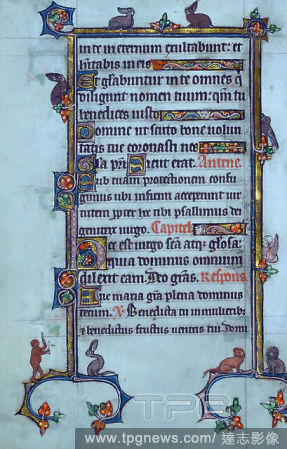 in te in eternum exultabunt: et
h'itabis in eis
Et glabuntur in te omnes q
diligunt nomen tuum: qm tu
benedices iusto
Domine ut scuto bone uolun
tatis tue coronasti nos
Gla pri Sicut erat. Antene
Sub tuam protectionem confu
gimus ubi infirmi acceperunt uir
tutem ipter hc tibi psallimus dei
genitrix uirgo. Capitel
Hec est uirgo scā atq; glosa:
qua dominus omnium
dilexit eam. Deo grās. Respons
Aue maria grā plena dominus
tecum. V Benedicta in mulieribꝫ:
et benedictus fructus uentris tui Domi
TPG
www.tpgnews.com/達志影像